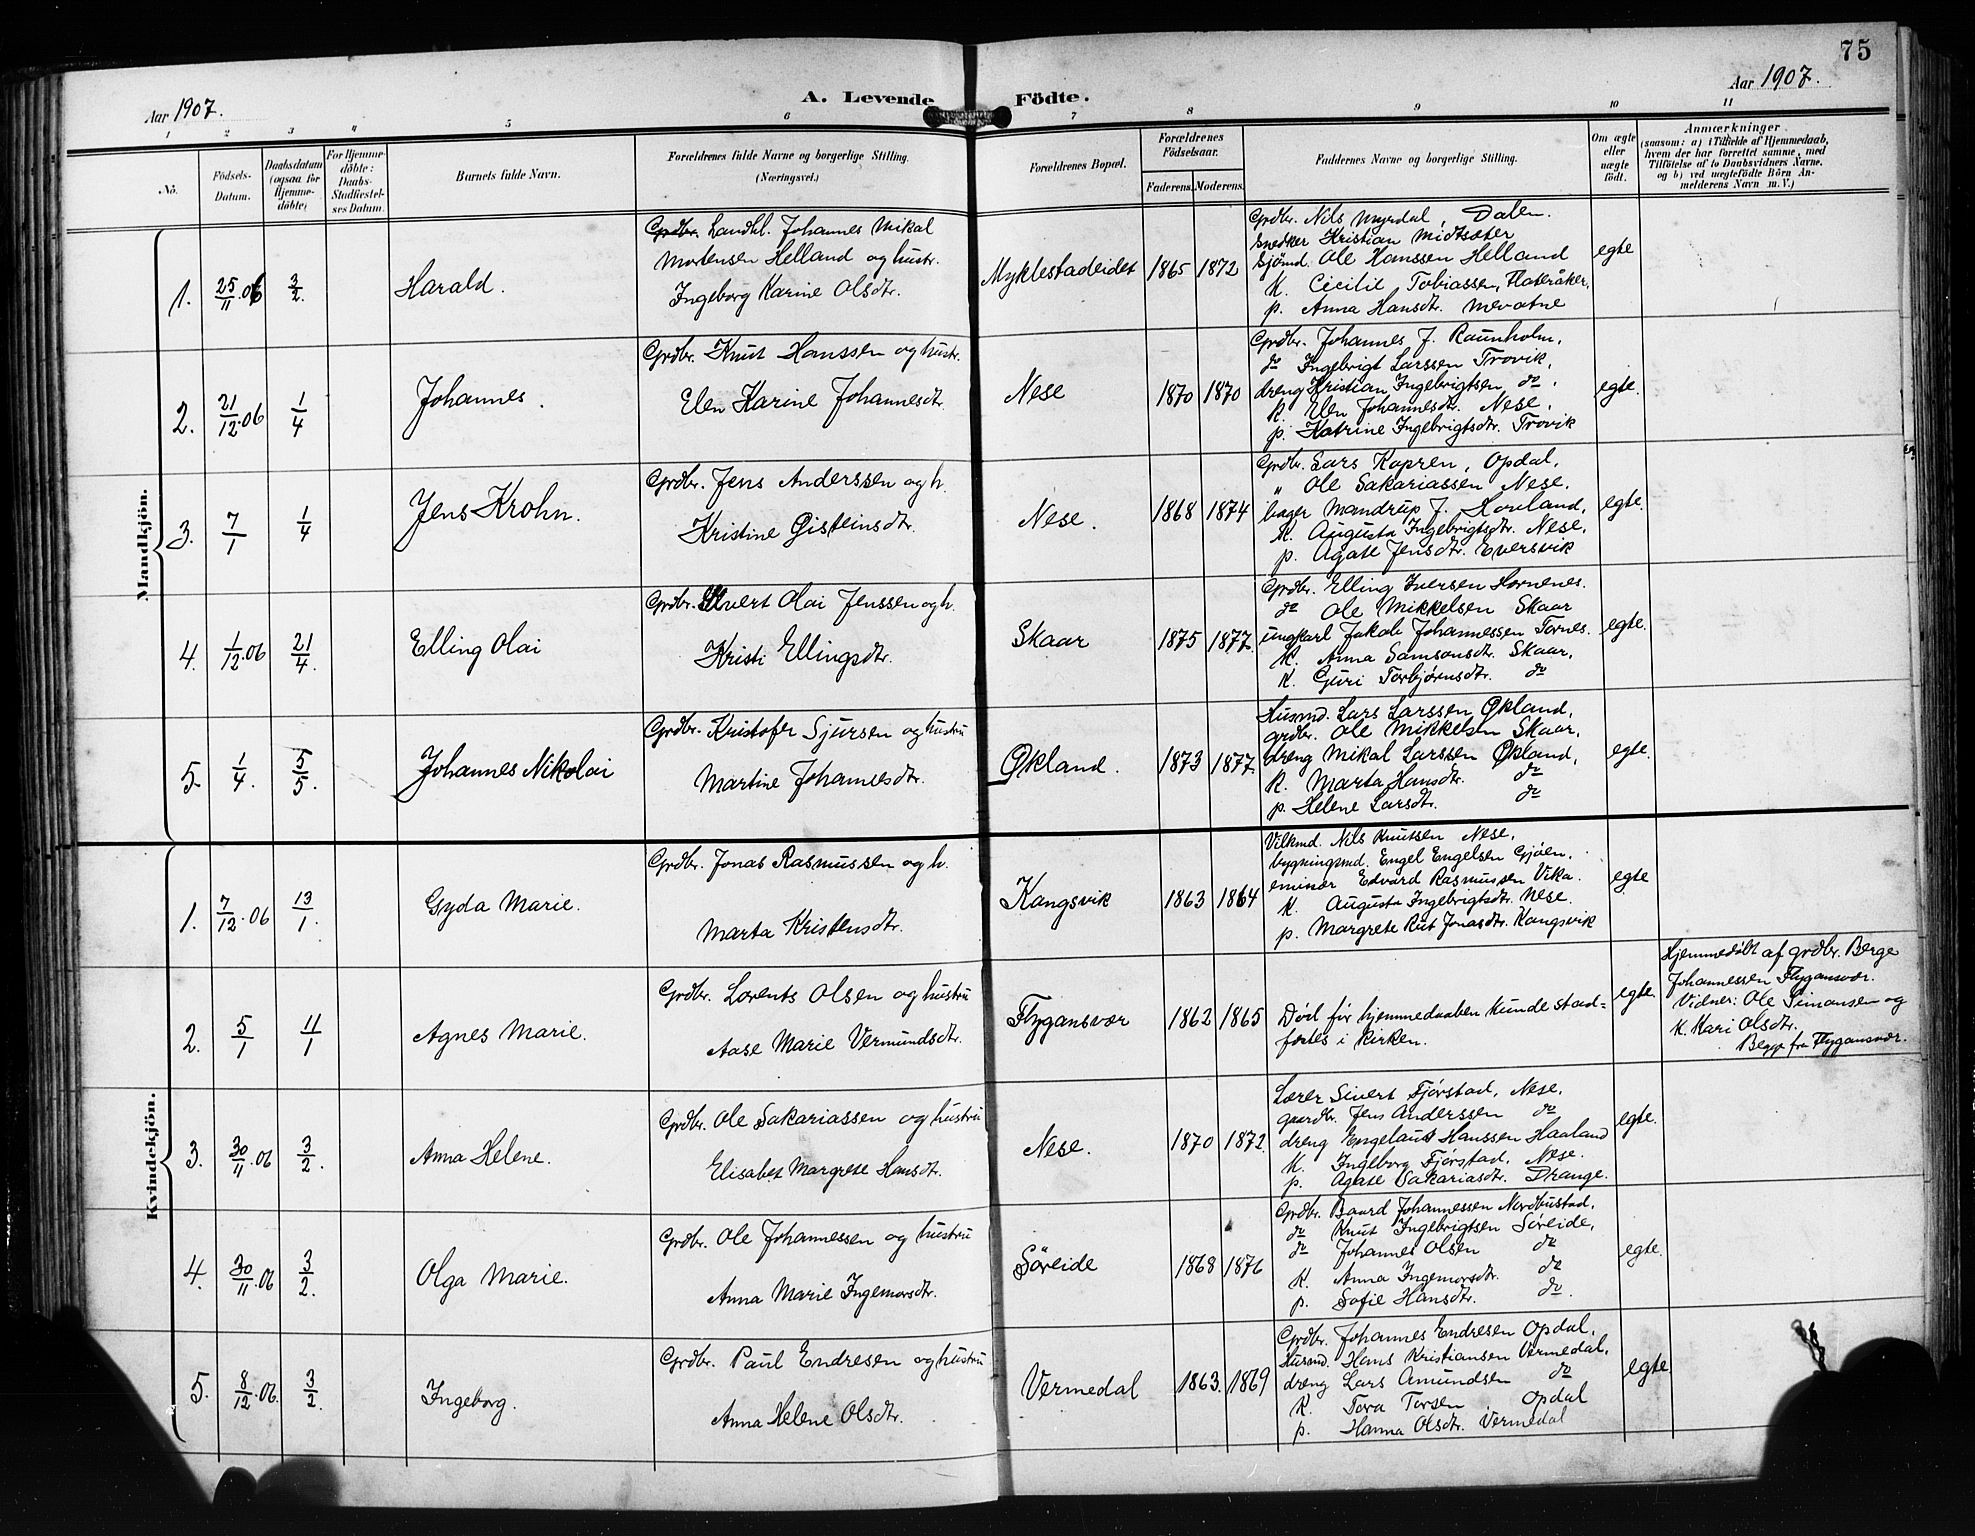 75
Aar 1907.
A. Levende Födte.
Aar 1907.
1 2 3 4 5 6 7 8 9 10 11
No.
Födsels-
Datum.
Daabsdatum
(ogsaa for
Hjemme-
döbte)
For Hjemme-
döbte:
Daabs-
Stadfæstel-
ses Datum.
Barnets fulde Navn.
Forældrenes fulde Navne og borgerlige Stilling.
(Næringsvei.)
Forældrenes Bopæl.
Forældrenes
Födselsaar.
Faderens. Moderens.
Faddernes Navne og borgerlige Stilling.
Om ægte
eller
uægte
födt.
Anmærkninger
(saasom: a) i Tilfælde af Hjemmedaab,
hvem der har forrettet samme, med
Tilföielse af to Daabsvidners Navne.
og b) ved uægtefödte Börn An-
melderens Navn m. V.)
Mandkjön.
1. 25/11.06 3/2. Harald.
Grdbr. Landhl. Johannes Mikal
Mortensen Helland og hustr.
Ingeborg Karine Olsdtr.
Myklestadeidet 1865 1872
Grdbr. Nils Myrdal, Dalen.
Snedker Kristian Midtsæter
Sjömd. Ole Hanssen Helland
K. Cecilie Tobiassen, Flateråker,
p. Anna Hansdtr. Mevatne
egte
2. 21/12.06 1/4 Johannes.
Grdbr. Knut Hanssen og hustr.
Elen Karine Johannesdtr.
Nese 1870 1870
Grdbr. Johannes J. Raunholm,
do Ingebrigt Larssen Trovik,
dreng Kristian Ingebrigtsen do.
K. Elen Johannesdtr. Nese,
p. Katrine Ingebrigtsdtr. Trovik
egte.
3. 7/1 1/4 Jens Krohn.
Grdbr. Jens Anderssen og h.
Kristine Gisteinsdtr.
Nese. 1868 1874
Grdbr. Lars Kapren, Opdal,
" Ole Sakariassen Nese.
bager Mandrup J.
K. Augusta Ingebrigtsdtr. Nese,
p. Agate Jensdtr. Eversvik
egte.
4. 1/12.06 21/4. Elling Olai
Grdbr. Sivert Olai Jenssen og h.
Kristi Ellingsdtr.
Skaar 1875 1877
Grdbr. Elling Iversen Hornenes.
do Ole Mikkelsen Skaar
ungkarl Jakob Johannessen Tornes.
K. Anna Samsonsdtr. Skaar,
K. Guri Torbjørnsdtr. do
egte.
5. 1/4. 5/5. Johannes Nikolai
Grdbr. Kristofer Sjursen og hustru
Martine Johannesdtr.
Økland. 1873 1877
Husmd. Lars Larssen Økland,
grdbr. Ole Mikkelsen Skaar,
dreng Mikal Larssen Økland,
K. Marta Hansdtr. do
p. Helene Larsdtr. do
egte.
Kvindekjön.
1. 7/12.06 13/1. Gyda Marie.
Grdbr. Jonas Rasmussen og h.
Marta Kristensdtr.
Kangsvik 1863 1864
Vilkmd. Nils Knutsen Nese,
bygningsmd. Engel Engelsen Gjøen,
eminær Edvard Rasmussen Vika.
K. Augusta Ingebrigtsdtr. Nese.
p. Margrete Rut Jonasdtr. Kangsvik
egte
2. 5/1 11/1 Agnes Marie.
Grdbr. Lorents Olsen og hustru
Aase Marie Vermundsdtr.
Flygansvær 1862 1865
Død før hjemmedaaben kunde stad-
fæstes i kirken.
egte.
Hjemmedøbt af grdbr. Berge
Johannessen Flygansvær.
Vidner: Ole Simonsen og
K. Kari Olsdtr.
Begge fra Flygansvær.
3. 30/11.06 3/2. Anna Helene.
Grdbr. Ole Sakariassen og hustru
Elisabet Margrete Hansdtr.
Nese. 1870 1872.
Lærer Sivert Fjørstad, Nese,
gaardbr. Jens Anderssen do
dreng Engelaut Hanssen Haaland
K. Ingeborg Fjørstad, Nese.
p. Agate Sakariasdtr. Drange.
egte.
4. 30/11.06 3/2. Olga Marie.
Grdbr. Ole Johannessen og hustru
Anna Marie Ingemorsdtr.
Søreide 1868 1876
Grdbr. Baard Johannessen Nordhustad,
do Knut Ingebrigtsen Søreide,
do Johannes Olsen do
K. Anna Ingemorsdtr. do
p. Sofie Hansdtr. do.
egte.
5. 8/12.06. 3/2. Ingeborg.
Grdbr. Paul Endresen og hustru
Anna Helene Olsdtr.
Vermedal 1863. 1869
Grdbr. Johannes Endresen Opdal,
Husmd. Hans Kristiansen Vermedal,
dreng Lars Amundsen do
K. Tora Torsen Opdal
p. Hanna Olsdtr. Vermedal
egte.